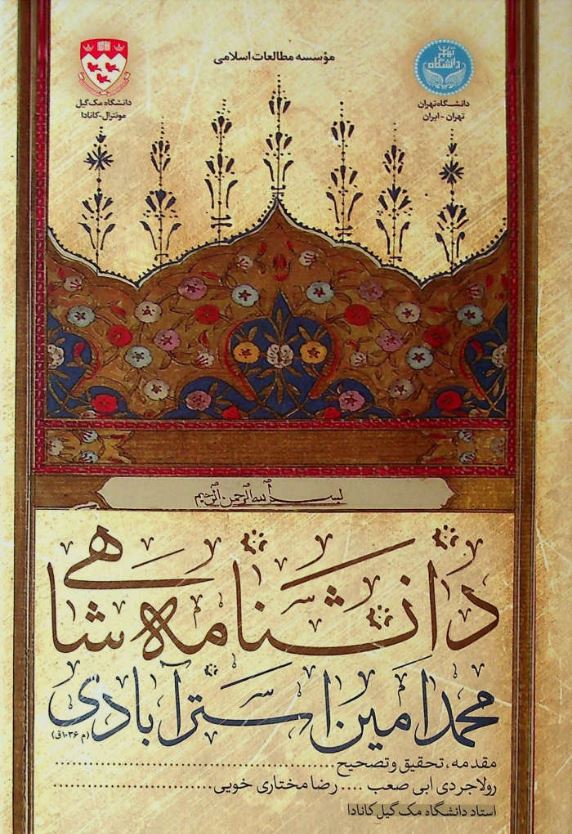 مؤسسه مطالعات اسلامی
دانشگاه تهران
تهران - ایران
دانشگاه مک‌گیل
مونترال-کانادا
بسم الله الرحمن الرحیم
دانشنامه شاهی
محمد امین استرآبادی
(م ۱۰۳۶ق)
مقدمه، تحقیق و تصحیح ..........................................
رولا جردی ابی صعب .... رضا مختاری خویی ....................
استاد دانشگاه مک گیل کانادا